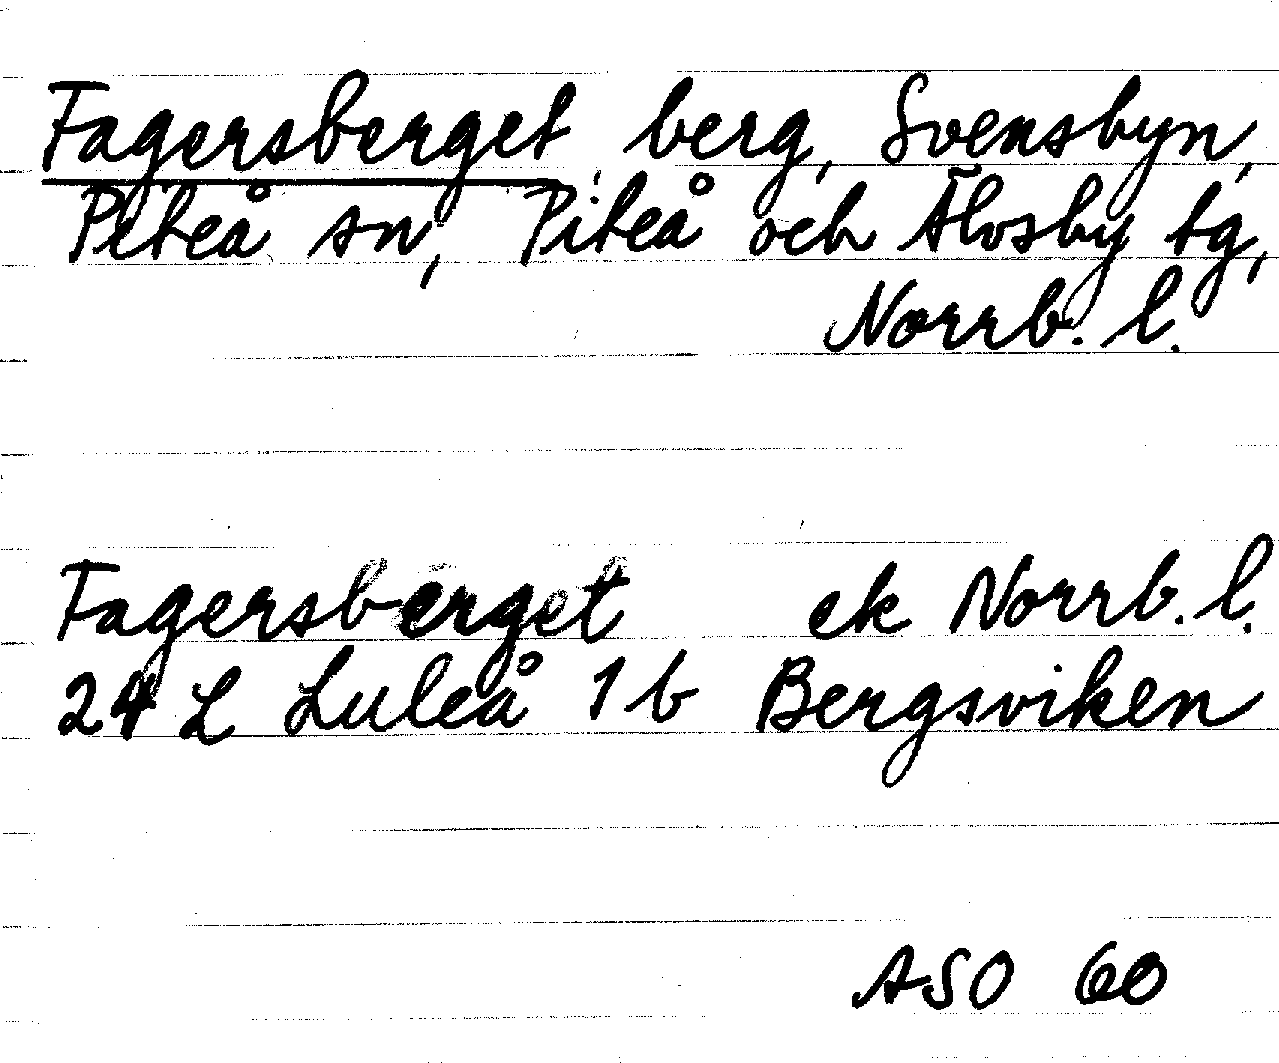 Fagersberget, berg, Svensbyn,
Piteå sn, Piteå och Älvsby tg,
Norrb. l.
Fagersberget ek Norrb. l.
24 L Luleå 1 b Bergsviken
ASO 60